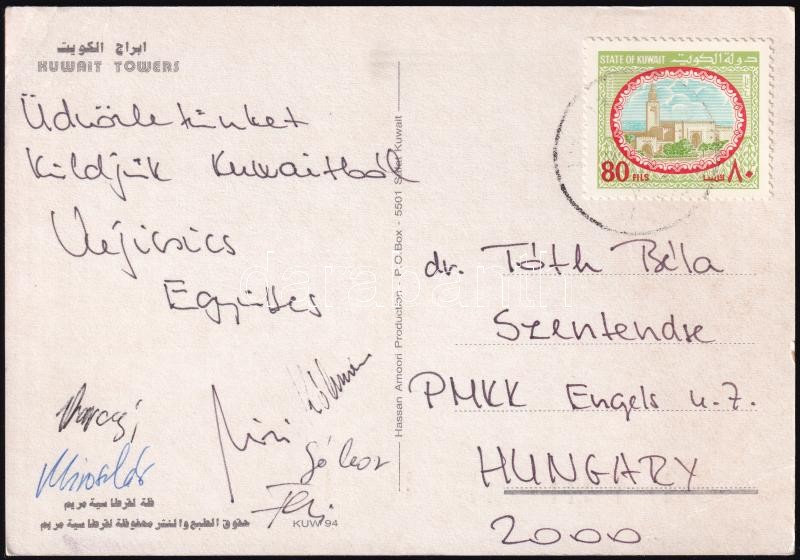 ابراج الكويت
KUWAIT TOWERS
Üdvözletünket
Küldjük Kuwaitból
Vujicsics
Együttes
Kálmán
Miri
Gábor
Feri
Miroslav
حقوق الطبع والنشر محفوظة لقرطاسية مريم
KUW 94
Hassan Amoori Production - P.O.Box - 5501 Safat Kuwait
STATE OF KUWAIT دولة الكويت
80 FILS ٨٠ فلسا
dr. Tóth Béla
Szentendre
PMKK Engels u. 7.
HUNGARY
2000
darabanth